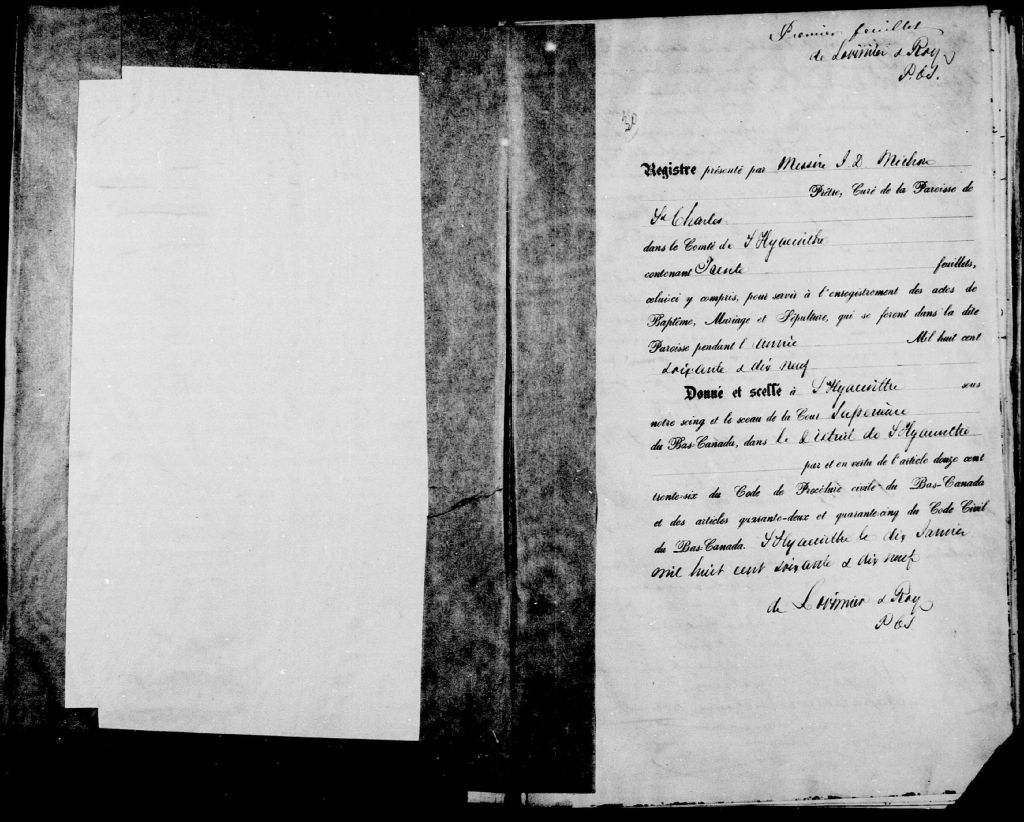 Premier feuillet
de Lorimier & Roy
P.C.S.
Registre présenté par Messire J D Michon
Prêtre, Curé de la Paroisse de
St Charles
dans le Comté de S Hyacinthe
contenant Trente feuillets,
celui-ci y compris, pour servir à l'enregistrement des actes de
Baptême, Mariage et Sépulture, qui se feront dans la dite
Paroisse pendant l'année Mil huit cent
soixante & dix neuf
Donné et scellé à S Hyacinthe sous
notre seing et le sceau de la Cour Superieure
du Bas-Canada, dans le District de S Hyacinthe
par et en vertu de l'article douze cent
trente-six du Code de Procédure civile du Bas-Canada
et des articles quarante-deux et quarante-cinq du Code Civil
du Bas-Canada. S Hyacinthe le dix Janvier
mil huit cent soixante & dix neuf
de Lorimier & Roy
P C S